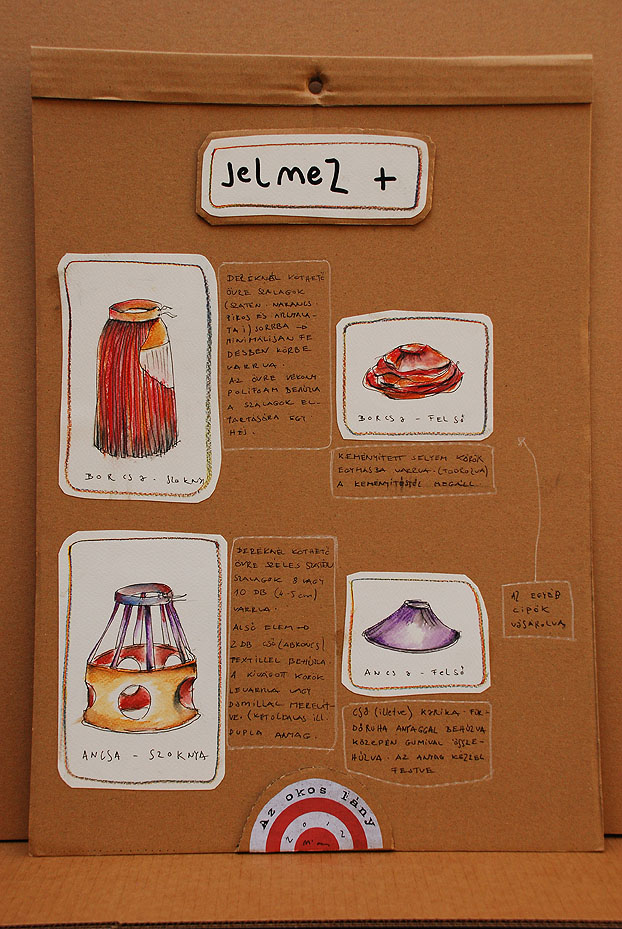 Jelmez +
DEREKNÉL KÖTHETŐ
ÖVRE SZALAGOK
(SZATÉN - NARANCS -
PIROS ÉS ÁRNYALA-
TAI) SORBA →
MINIMÁLISAN FE
DÉSBEN KÖRBE
VARRVA.
AZ ÖVRE VÉKONY
POLIFOAM BEHÚZVA
A SZALAGOK EL-
TARTÁSÁRA EGY
HÉJ.
BORCSA - SZOKNYA
BORCSA - FELSŐ
KEMÉNYÍTETT SELYEM KÖRÖK
EGYMÁSBA VARRVA. (TODROZVA)
A KEMÉNYÍTÉSTŐL MEGÁLL
DEREKNÉL KÖTHETŐ
ÖVRE SZÉLES SZATÉN
SZALAGOK 8 VAGY
10 DB (4-5 cm)
VARRVA.
ALSÓ ELEM →
2 DB CSŐ (ABRONCS)
TEXTILLEL BEHÚZVA
A KIVÁGOTT KÖRÖK
LEVARRVA VAGY
DAMILLAL MEREVÍT-
VE. (KÉTOLDALAS ILL.
DUPLA ANYAG.
ANCSA - SZOKNYA
ANCSA - FELSŐ
CSŐ (illetve) KARIKA - FÜR-
DŐRUHA ANYAGGAL BEHÚZVA
KÖZEPÉN GUMIVAL ÖSSZE-
HÚZVA. AZ ANYAG KÉZZEL
FESTVE
AZ EGYÉB
CIPŐK
VÁSÁROLVA
Az okos lány
2012